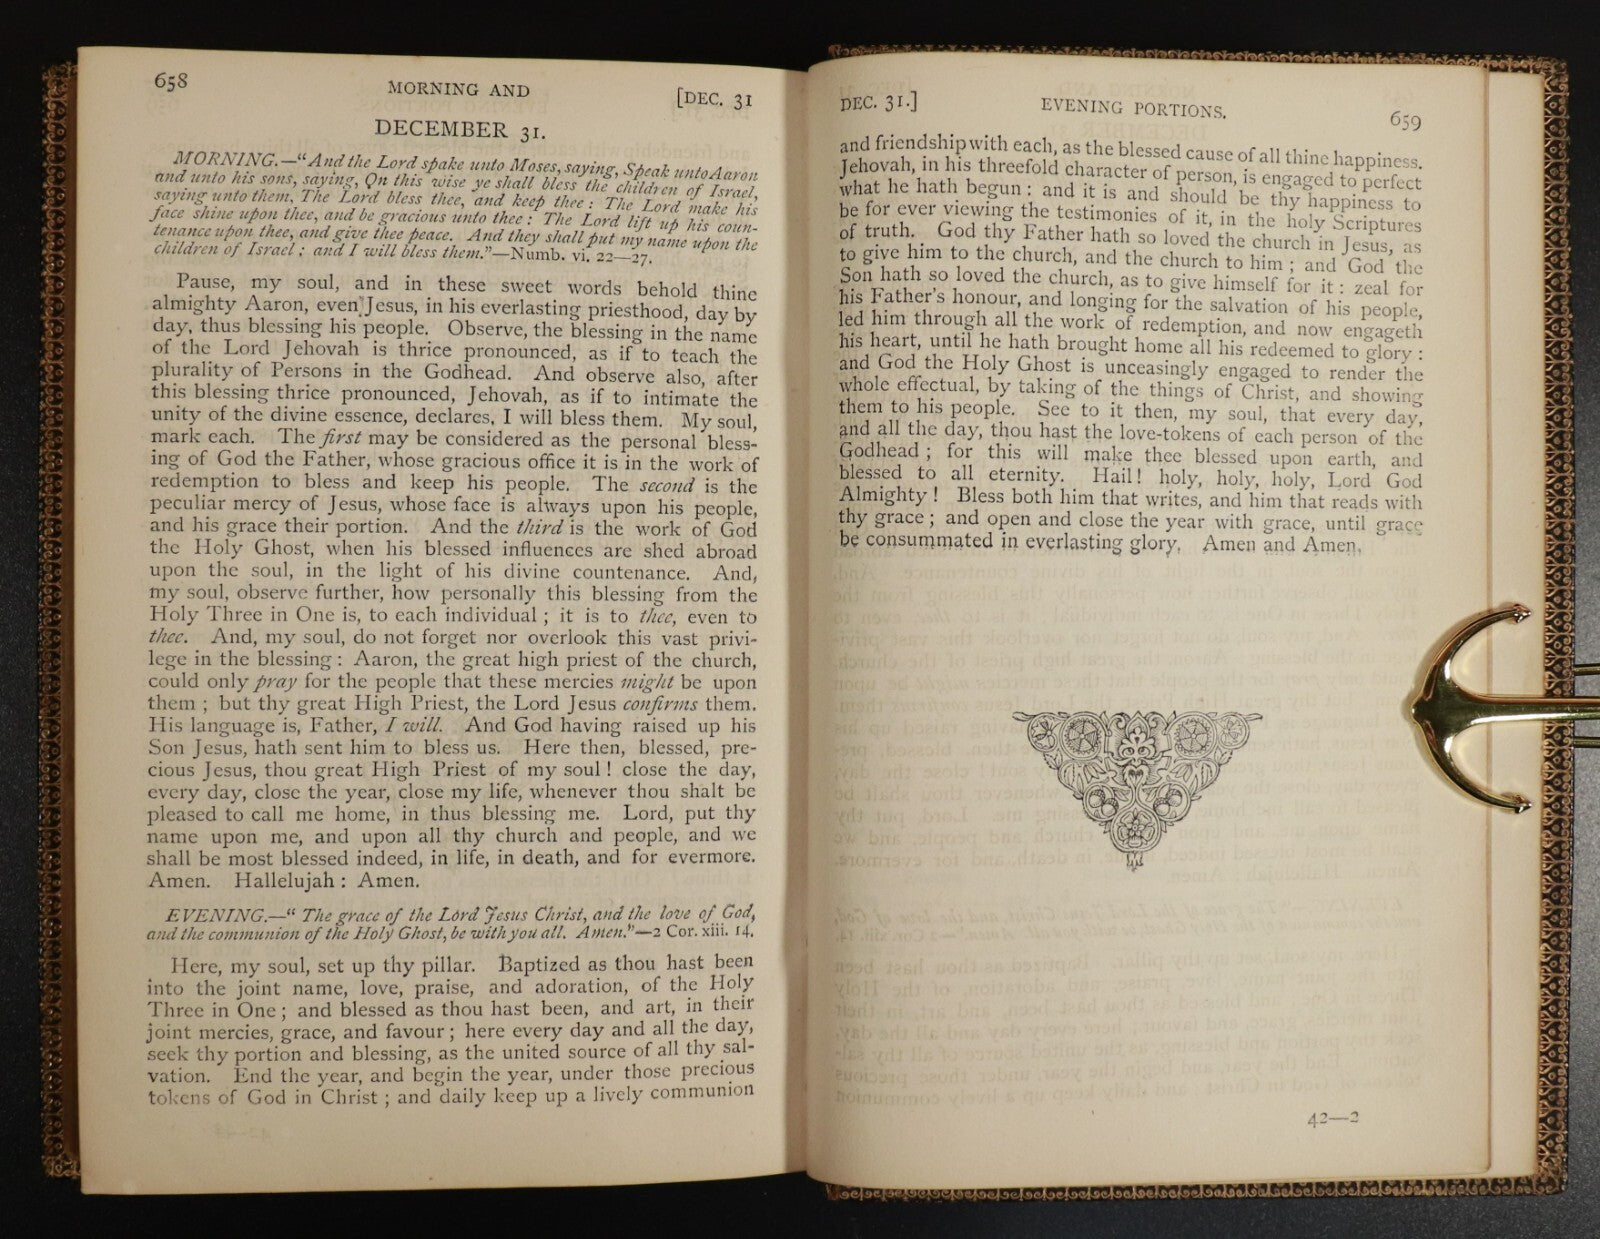 658
MORNING AND
[DEC. 31
DECEMBER 31.
MORNING.—“And the Lord spake unto Moses, saying, Speak unto Aaron
and unto his sons, saying, On this wise ye shall bless the children of Israel,
saying unto them, The Lord bless thee, and keep thee: The Lord make his
face shine upon thee, and be gracious unto thee: The Lord lift up his coun-
tenance upon thee, and give thee peace. And they shall put my name upon the
children of Israel; and I will bless them.”—Numb. vi. 22—27.
Pause, my soul, and in these sweet words behold thine
almighty Aaron, even Jesus, in his everlasting priesthood, day by
day, thus blessing his people. Observe, the blessing in the name
of the Lord Jehovah is thrice pronounced, as if to teach the
plurality of Persons in the Godhead. And observe also, after
this blessing thrice pronounced, Jehovah, as if to intimate the
unity of the divine essence, declares, I will bless them. My soul,
mark each. The first may be considered as the personal bless-
ing of God the Father, whose gracious office it is in the work of
redemption to bless and keep his people. The second is the
peculiar mercy of Jesus, whose face is always upon his people,
and his grace their portion. And the third is the work of God
the Holy Ghost, when his blessed influences are shed abroad
upon the soul, in the light of his divine countenance. And,
my soul, observe further, how personally this blessing from the
Holy Three in One is, to each individual; it is to thee, even to
thee. And, my soul, do not forget nor overlook this vast privi-
lege in the blessing: Aaron, the great high priest of the church,
could only pray for the people that these mercies might be upon
them; but thy great High Priest, the Lord Jesus confirms them.
His language is, Father, I will. And God having raised up his
Son Jesus, hath sent him to bless us. Here then, blessed, pre-
cious Jesus, thou great High Priest of my soul! close the day,
every day, close the year, close my life, whenever thou shalt be
pleased to call me home, in thus blessing me. Lord, put thy
name upon me, and upon all thy church and people, and we
shall be most blessed indeed, in life, in death, and for evermore.
Amen. Hallelujah: Amen.
EVENING.—“The grace of the Lord Jesus Christ, and the love of God,
and the communion of the Holy Ghost, be with you all. Amen.”—2 Cor. xiii. 14.
Here, my soul, set up thy pillar. Baptized as thou hast been
into the joint name, love, praise, and adoration, of the Holy
Three in One; and blessed as thou hast been, and art, in their
joint mercies, grace, and favour; here every day and all the day,
seek thy portion and blessing, as the united source of all thy sal-
vation. End the year, and begin the year, under those precious
tokens of God in Christ; and daily keep up a lively communion
DEC. 31.]
EVENING PORTIONS.
659
and friendship with each, as the blessed cause of all thine happiness.
Jehovah, in his threefold character of person, is engaged to perfect
what he hath begun: and it is and should be thy happiness to
be for ever viewing the testimonies of it, in the holy Scriptures
of truth. God thy Father hath so loved the church in Jesus, as
to give him to the church, and the church to him; and God the
Son hath so loved the church, as to give himself for it: zeal for
his Father's honour, and longing for the salvation of his people,
led him through all the work of redemption, and now engageth
his heart, until he hath brought home all his redeemed to glory:
and God the Holy Ghost is unceasingly engaged to render the
whole effectual, by taking of the things of Christ, and showing
them to his people. See to it then, my soul, that every day,
and all the day, thou hast the love-tokens of each person of the
Godhead; for this will make thee blessed upon earth, and
blessed to all eternity. Hail! holy, holy, holy, Lord God
Almighty! Bless both him that writes, and him that reads with
thy grace; and open and close the year with grace, until grace
be consummated in everlasting glory. Amen and Amen.
42—2